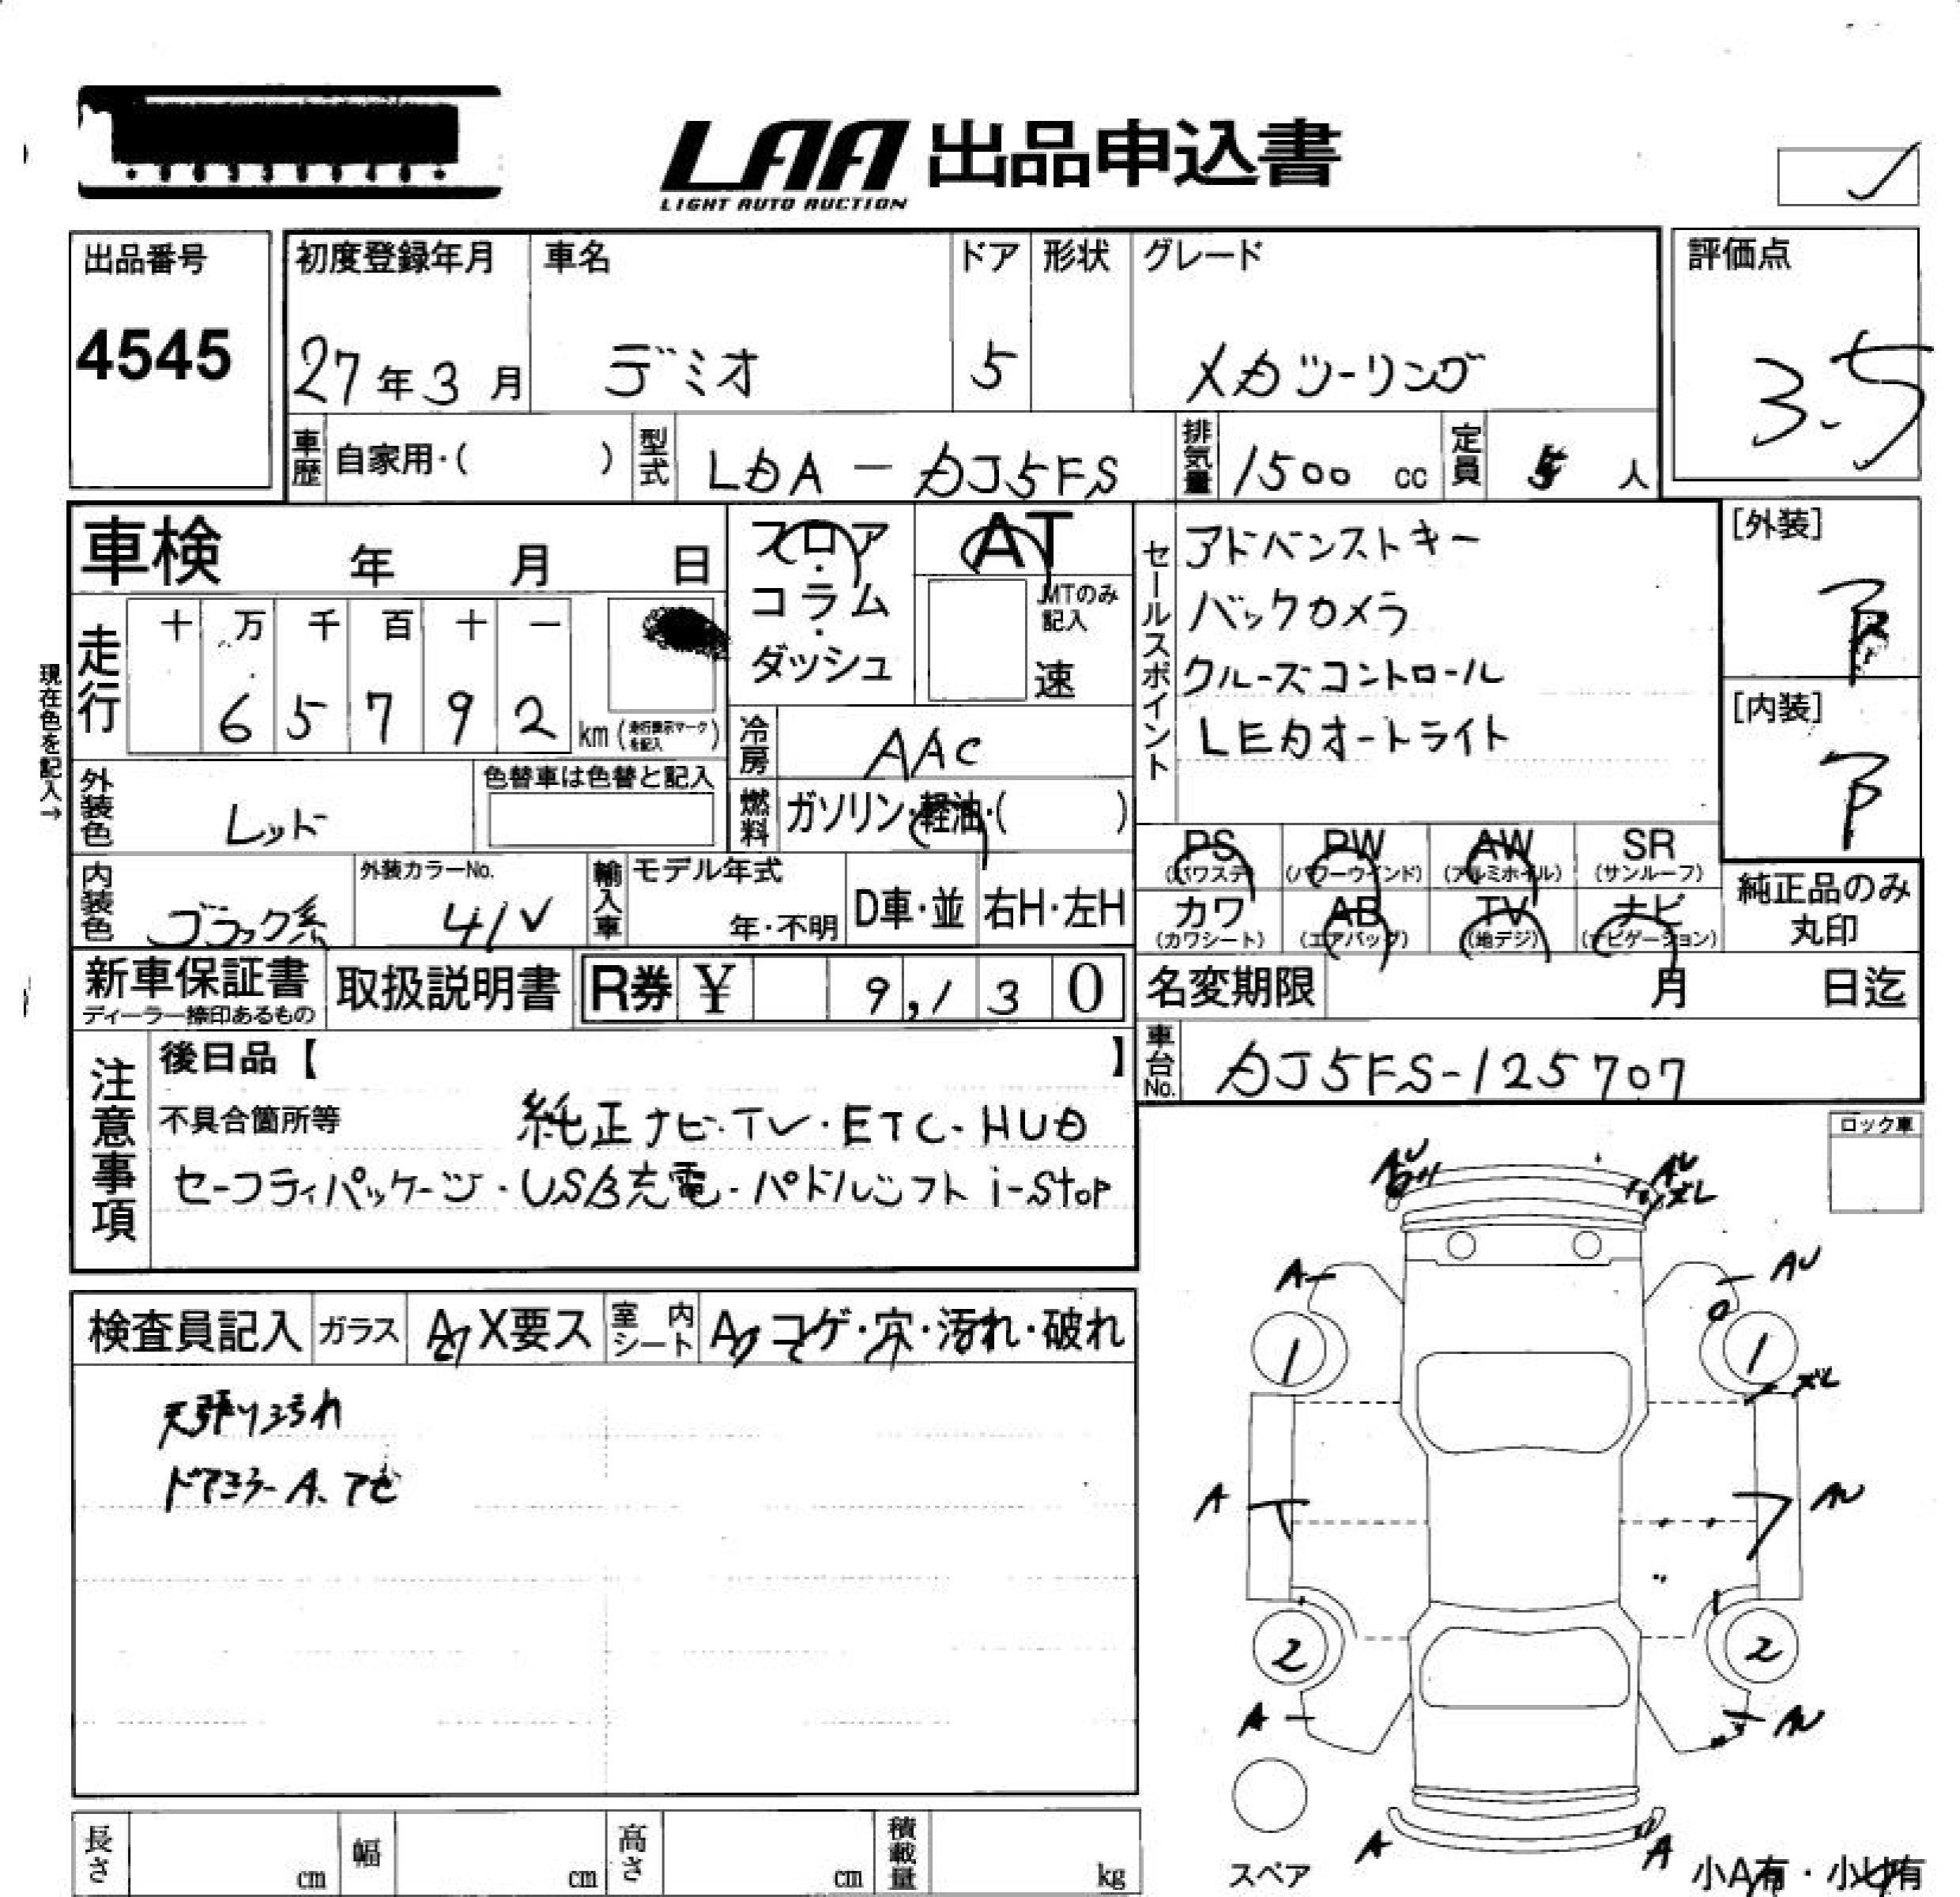 LAA 出品申込書
LIGHT AUTO AUCTION
出品番号
4545
初度登録年月
27年3月
車名
デミオ
ドア
5
形状
グレード
XDツーリング
評価点
3.5
車歴
自家用・( )
型式
LDA-DJ5FS
排気量
1500 cc
定員
5 人
車検 年 月 日
フロア・コラム・ダッシュ
AT
MTのみ記入
速
セールスポイント
アドバンストキー
バックカメラ
クルーズコントロール
LEDオートライト
[外装]
B
[内装]
現在色を記入→
走行
十 万 千 百 十 一
6 5 7 9 2 km (走行表示マークを記入)
冷房
AAC
外装色
レッド
色替車は色替と記入
燃料
ガソリン・軽油・( )
PS (パワステ)
PW (パワーウインド)
AW (アルミホイル)
SR (サンルーフ)
カワ (カワシート)
AB (エアバッグ)
TV (地デジ)
ナビ (ナビゲーション)
純正品のみ
丸印
内装色
ブラック系
外装カラーNo.
41V
輸入車
モデル年式
年・不明
D車・並
右H・左H
新車保証書
ディーラー捺印あるもの
取扱説明書
R券 ¥ 9,130
名変期限 月 日迄
車台No.
DJ5FS-125707
注意事項
後日品【 】
不具合箇所等 純正ナビ・TV・ETC・HUD
セーフティパッケージ・USB充電・パドルシフト i-stop
ロック車
検査員記入
ガラス
A X要ス
室内シート
A コゲ・穴・汚れ・破れ
天張り汚れ
ドアミラーA、アセ
AU
AU
ズレ
A
AU
1
1
ズレ
A
AU
2
2
A
AU
A
A
スペア
小A有・小U有
長さ cm
幅 cm
高さ cm
積載量 kg